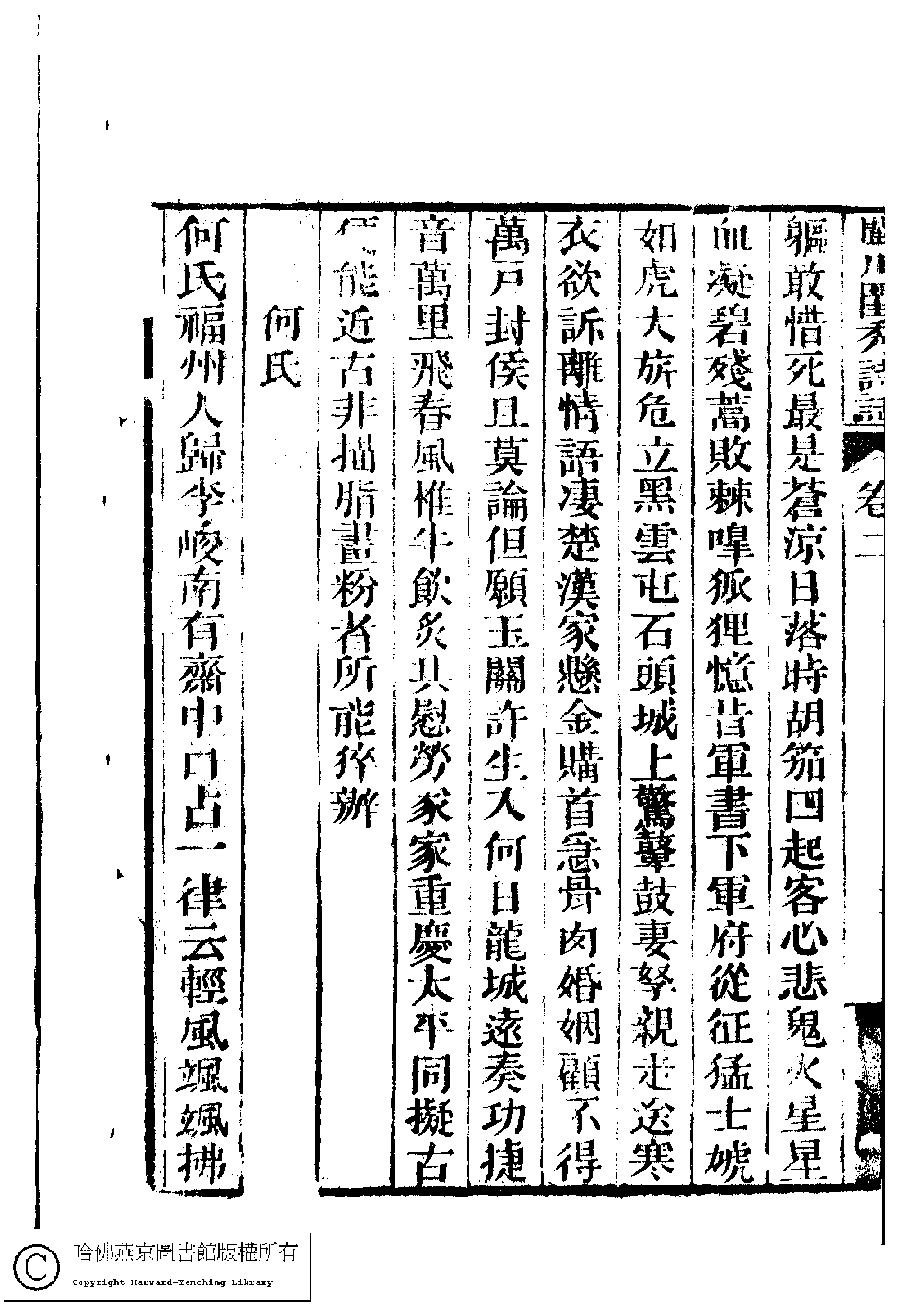 閨秀詩話 卷二
軀敢惜死最是蒼涼日落時胡笳四起客心悲鬼火星星
血凝碧殘蒿敗棘嘷狐狸憶昔軍書下軍府從征猛士虓
如虎大旂危立黑雲屯石頭城上驚鼙鼓妻孥親走送寒
衣欲訴離情語凄楚漢家懸金購首急骨肉婚姻顧不得
萬戶封侯且莫論但願玉關許生入何日龍城遠奏功捷
音萬里飛春風椎牛飲炙共慰勞家家重慶太平同擬古
能近古非描脂畫粉者所能猝辦
何氏
何氏福州人歸李峻南有齋中口占一律云輕風颯颯拂
哈佛燕京圖書館版權所有
Copyright Harvard-Yenching Library